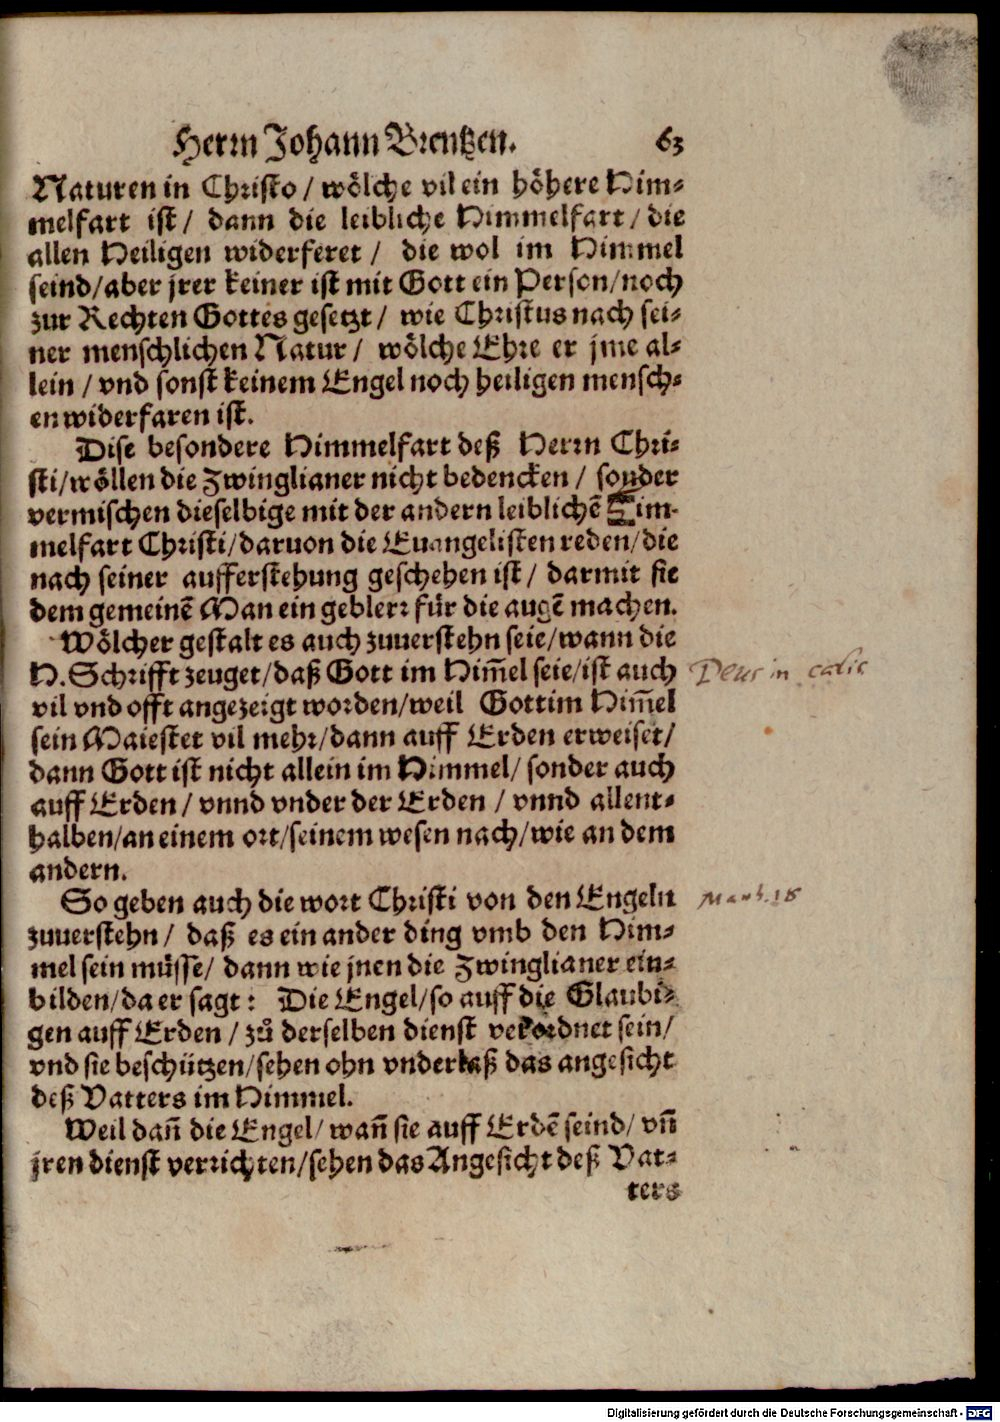 Herrn Johann Brentzen. 63
Naturen in Christo / wölche vil ein höhere Him-
melfart ist / dann die leibliche Himmelfart / die
allen Heiligen widerferet / die wol im Himmel
seind/aber jrer keiner ist mit Gott ein Person/noch
zur Rechten Gottes gesetzt / wie Christus nach sei-
ner menschlichen Natur / wölche Ehre er jme al-
lein / vnd sonst keinem Engel noch heiligen mensch-
en widerfaren ist.
Dise besondere Himmelfart deß Herrn Chri-
sti/wöllen die Zwinglianer nicht bedencken / sonder
vermischen dieselbige mit der andern leiblichẽ Him-
melfart Christi/daruon die Euangelisten reden/die
nach seiner aufferstehung geschehen ist / darmit sie
dem gemeinẽ Man ein geblerr für die augẽ machen.
Wölcher gestalt es auch zuuerstehn seie/wann die
H. Schrifft zeuget/daß Gott im Him̃el seie/ist auch Deus in celis
vil vnd offt angezeigt worden/weil Gott im Him̃el
sein Maiestet vil mehr/dann auff Erden erweiset/
dann Gott ist nicht allein im Himmel/ sonder auch
auff Erden / vnnd vnder der Erden / vnnd allent-
halben/an einem ort/seinem wesen nach/wie an dem
andern.
So geben auch die wort Christi von den Engeln Math. 18
zuuerstehn / daß es ein ander ding vmb den Him-
mel sein müsse/ dann wie jnen die Zwinglianer ein-
bilden/da er sagt: Die Engel/so auff die Glaubi-
gen auff Erden / zů derselben dienst verordnet sein/
vnd sie beschützen/sehen ohn vnderlaß das angesicht
deß Vatters im Himmel.
Weil dañ die Engel/ wañ sie auff Erdẽ seind/ vñ
jren dienst verrichten/sehen das Angesicht deß Vat-
ters
Digitalisierung gefördert durch die Deutsche Forschungsgemeinschaft - DFG